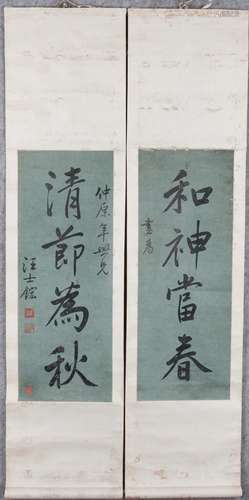 和神當春
書為
仲原年學兄
清節為秋
汪士鋐